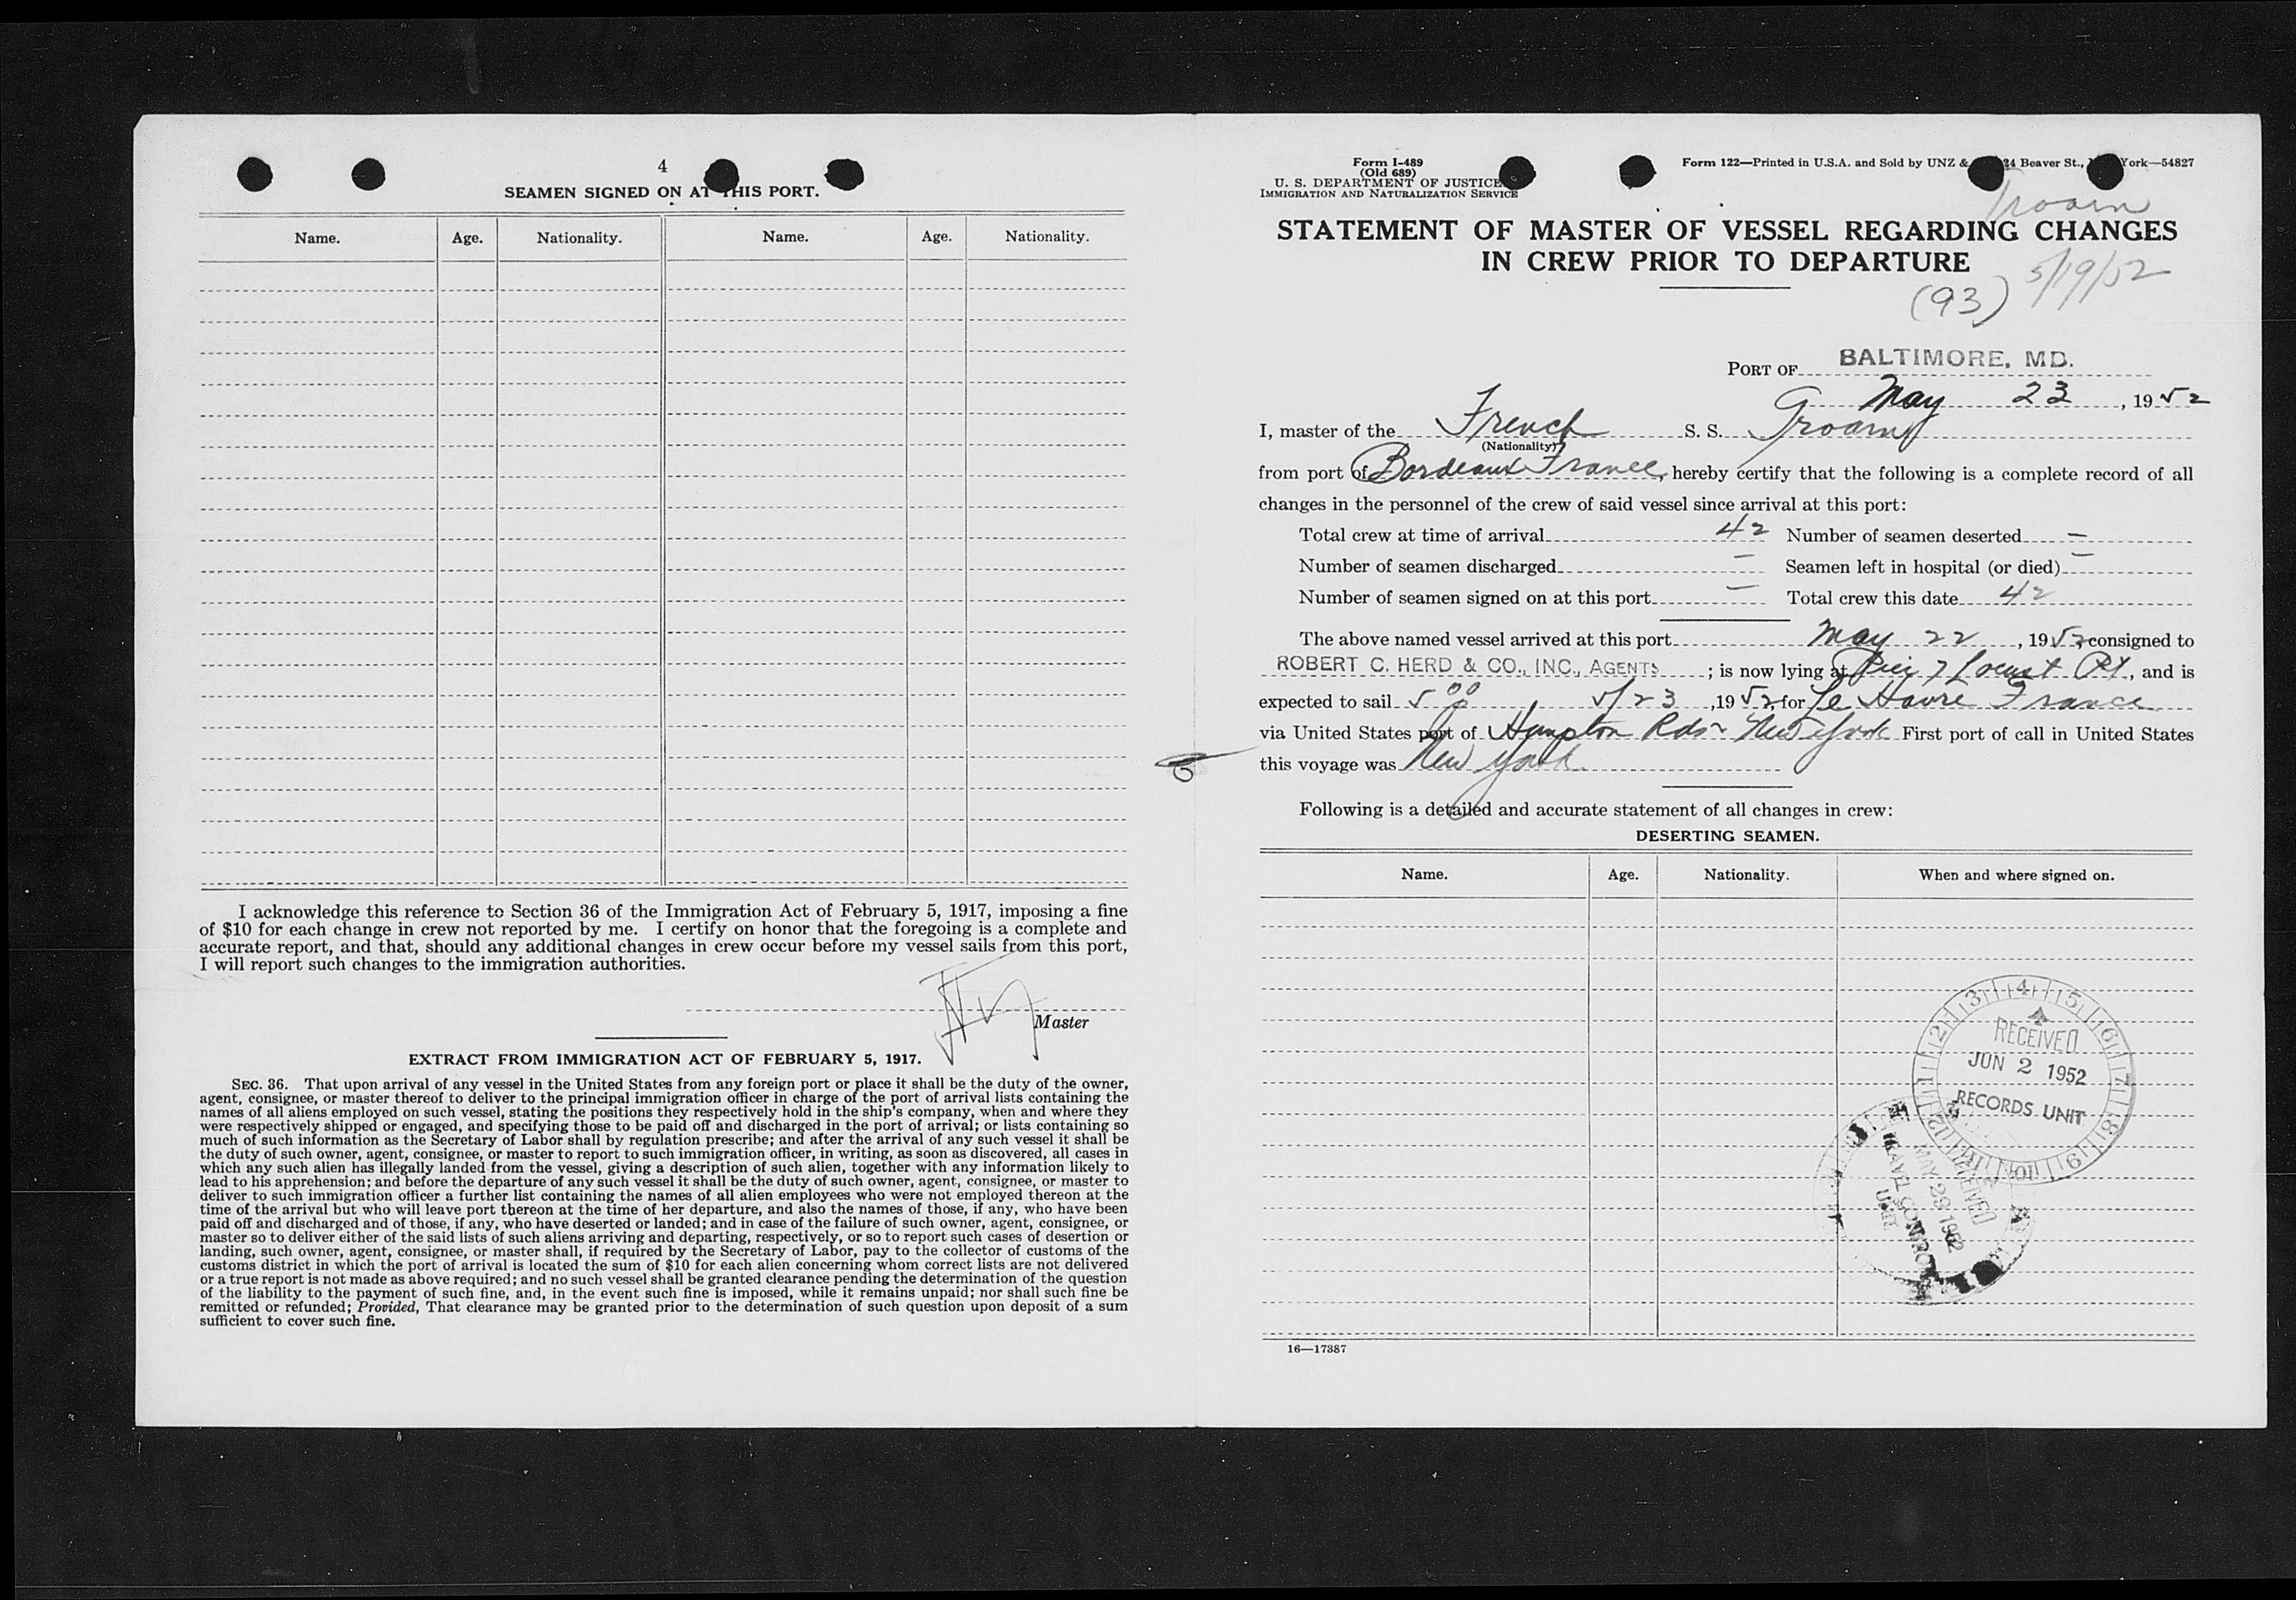 4
SEAMEN SIGNED ON AT THIS PORT.
Name. Age. Nationality. Name. Age. Nationality.
I acknowledge this reference to Section 36 of the Immigration Act of February 5, 1917, imposing a fine
of $10 for each change in crew not reported by me. I certify on honor that the foregoing is a complete and
accurate report, and that, should any additional changes in crew occur before my vessel sails from this port,
I will report such changes to the immigration authorities.
Master
EXTRACT FROM IMMIGRATION ACT OF FEBRUARY 5, 1917.
SEC. 36. That upon arrival of any vessel in the United States from any foreign port or place it shall be the duty of the owner,
agent, consignee, or master thereof to deliver to the principal immigration officer in charge of the port of arrival lists containing the
names of all aliens employed on such vessel, stating the positions they respectively hold in the ship's company, when and where they
were respectively shipped or engaged, and specifying those to be paid off and discharged in the port of arrival; or lists containing so
much of such information as the Secretary of Labor shall by regulation prescribe; and after the arrival of any such vessel it shall be
the duty of such owner, agent, consignee, or master to report to such immigration officer, in writing, as soon as discovered, all cases in
which any such alien has illegally landed from the vessel, giving a description of such alien, together with any information likely to
lead to his apprehension; and before the departure of any such vessel it shall be the duty of such owner, agent, consignee, or master to
deliver to such immigration officer a further list containing the names of all alien employees who were not employed thereon at the
time of the arrival but who will leave port thereon at the time of her departure, and also the names of those, if any, who have been
paid off and discharged and of those, if any, who have deserted or landed; and in case of the failure of such owner, agent, consignee, or
master so to deliver either of the said lists of such aliens arriving and departing, respectively, or so to report such cases of desertion or
landing, such owner, agent, consignee, or master shall, if required by the Secretary of Labor, pay to the collector of customs of the
customs district in which the port of arrival is located the sum of $10 for each alien concerning whom correct lists are not delivered
or a true report is not made as above required; and no such vessel shall be granted clearance pending the determination of the question
of the liability to the payment of such fine, and, in the event such fine is imposed, while it remains unpaid; nor shall such fine be
remitted or refunded; Provided, That clearance may be granted prior to the determination of such question upon deposit of a sum
sufficient to cover such fine.
Form I-489
(Old 689)
U. S. DEPARTMENT OF JUSTICE
IMMIGRATION AND NATURALIZATION SERVICE
Form 122—Printed in U.S.A. and Sold by UNZ & 24 Beaver St., York—54827
Troarn
STATEMENT OF MASTER OF VESSEL REGARDING CHANGES
IN CREW PRIOR TO DEPARTURE
(93) 5/19/52
PORT OF BALTIMORE, MD.
May 23, 1952
I, master of the French S. S. Troarn
(Nationality)
from port of Bordeaux France, hereby certify that the following is a complete record of all
changes in the personnel of the crew of said vessel since arrival at this port:
Total crew at time of arrival 42 Number of seamen deserted —
Number of seamen discharged — Seamen left in hospital (or died) —
Number of seamen signed on at this port — Total crew this date 42
The above named vessel arrived at this port May 22, 1952, consigned to
ROBERT C. HERD & CO., INC., AGENTS; is now lying at Pier 7 Locust Pt, and is
expected to sail 5 00 5/23, 1952, for Le Havre France
via United States port of Hampton Rds New York First port of call in United States
this voyage was New York
Following is a detailed and accurate statement of all changes in crew:
DESERTING SEAMEN.
Name. Age. Nationality. When and where signed on.
1 2 3 4 5 6 7 8 9 10 11 12
RECEIVED
JUN 2 1952
RECORDS UNIT
RECEIVED
MAY 29 1952
TRAVEL CONTROL
UNIT
16—17387